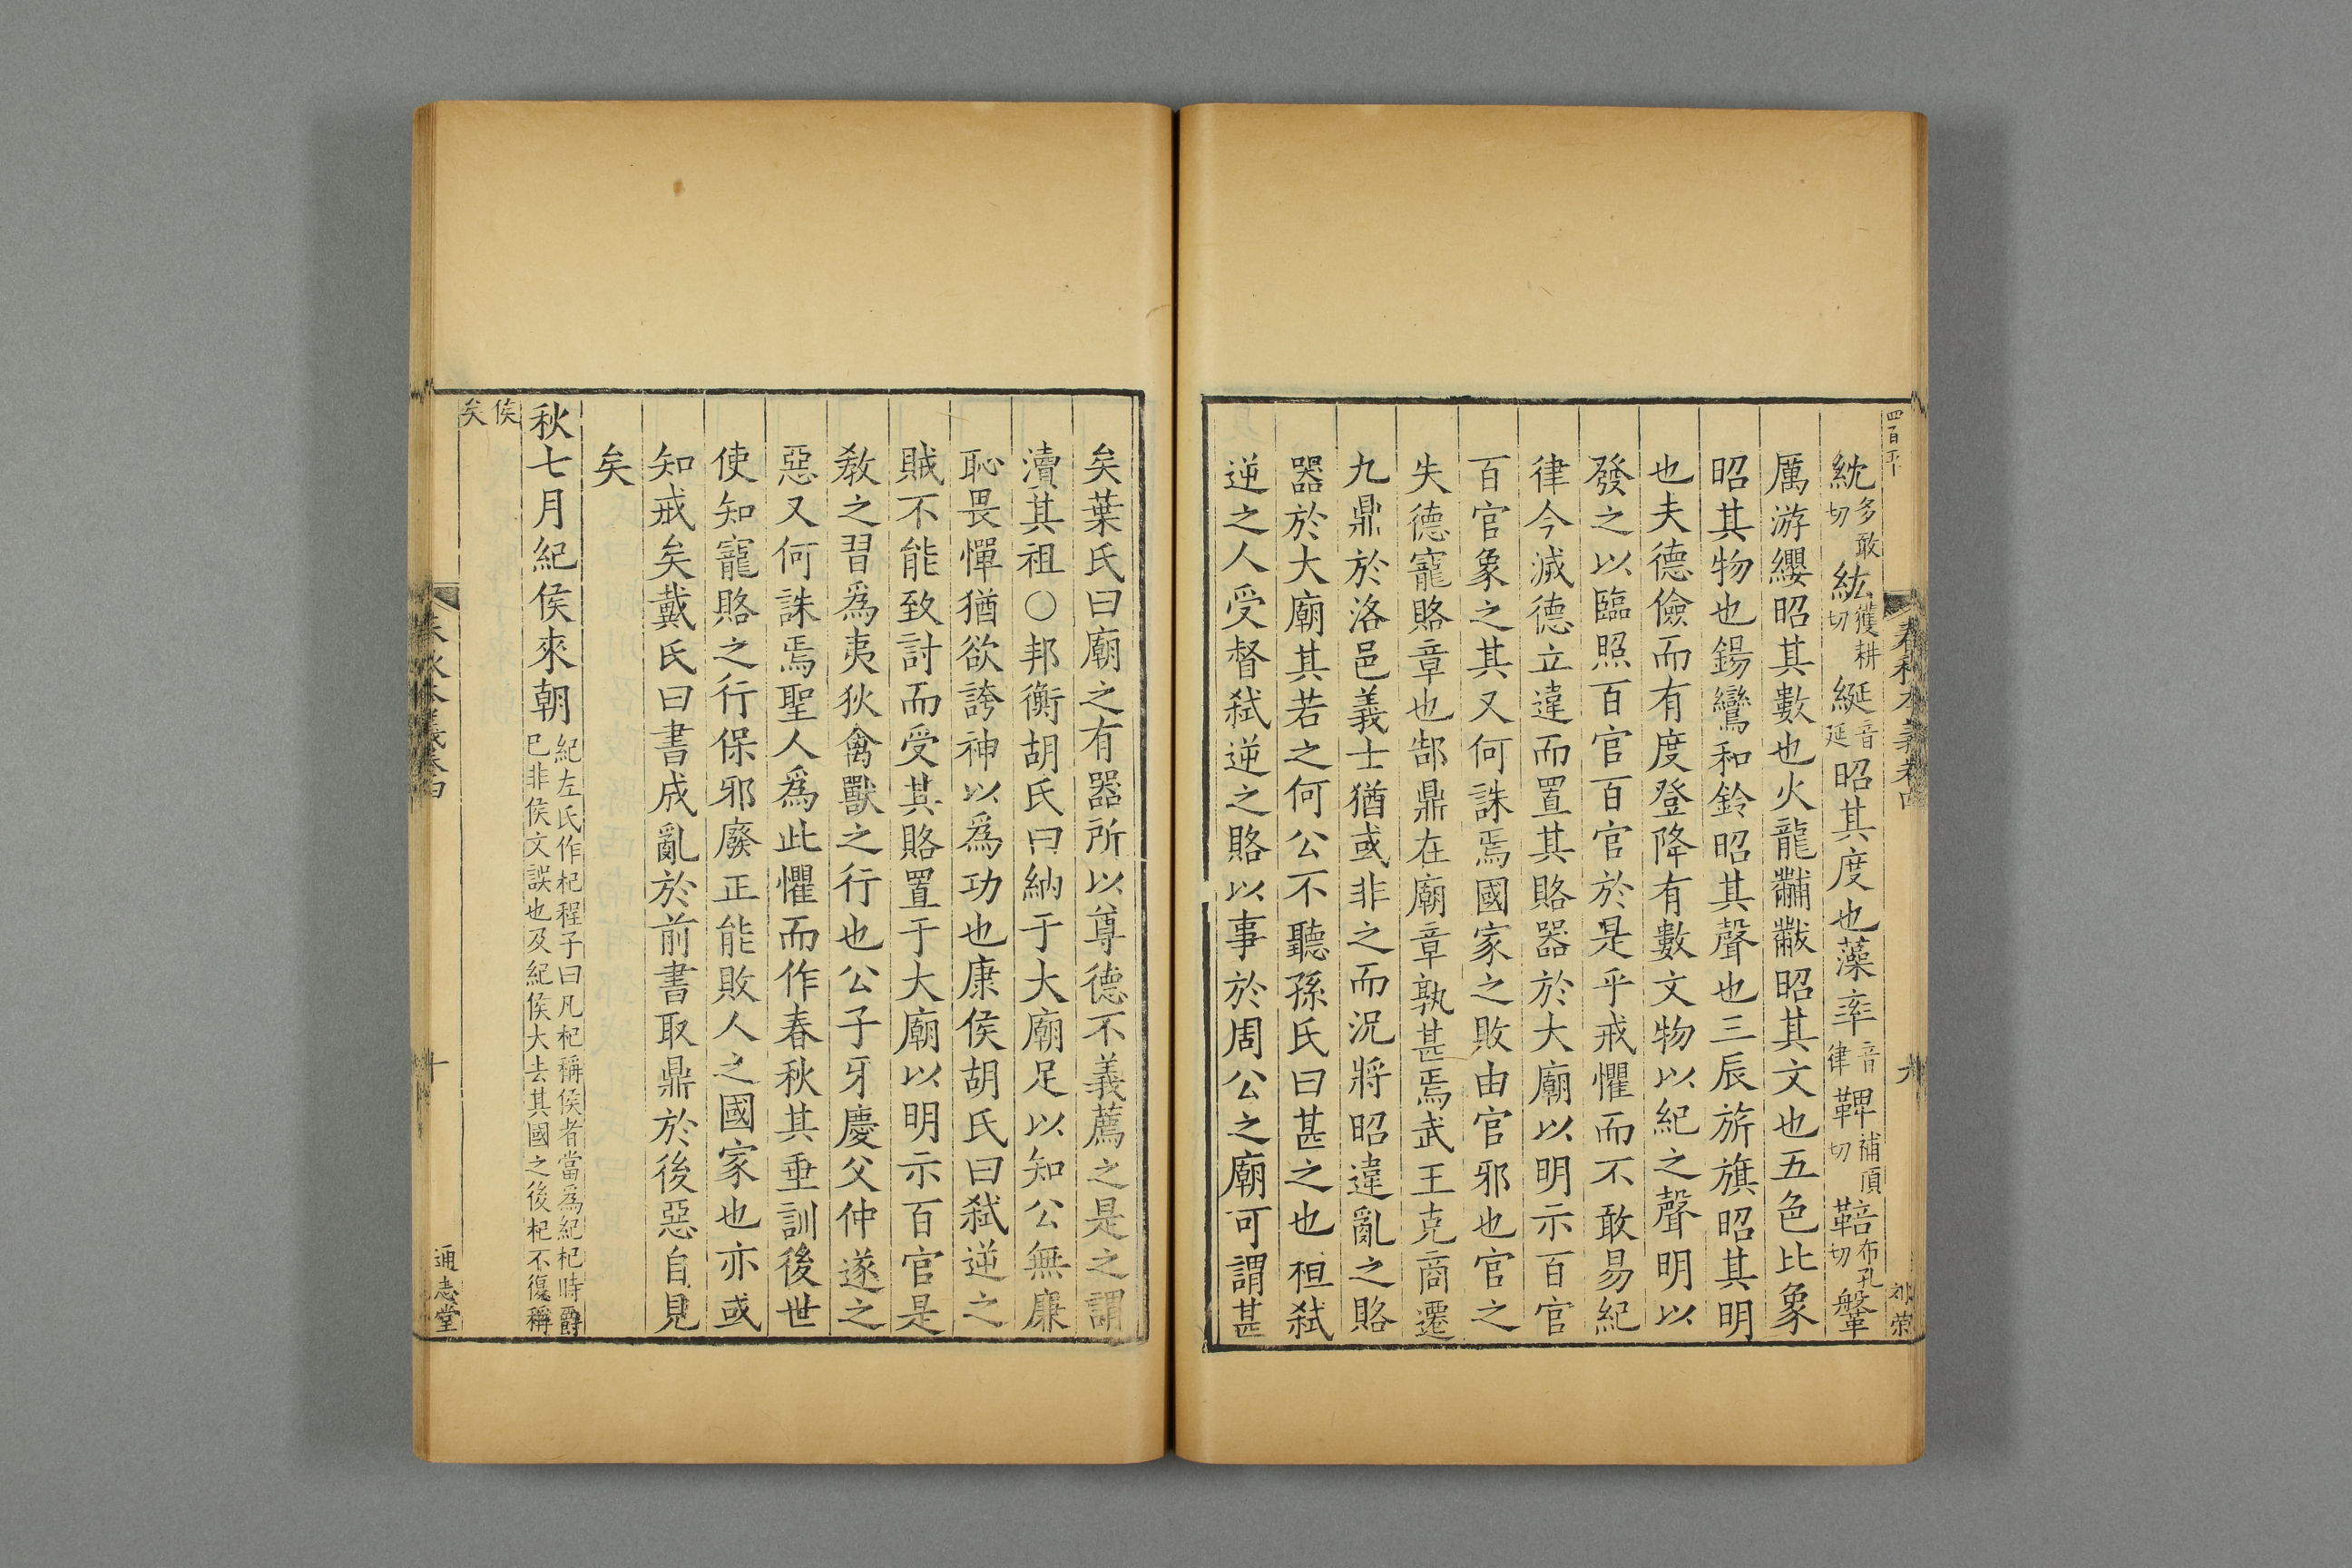 紞多敢切紘獲耕切綖音延昭其度也藻率音律鞞補頂切鞛布孔切鞶
厲游纓昭其數也火龍黼黻昭其文也五色比象
昭其物也鍚鸞和鈴昭其聲也三辰旂旗昭其明
也夫德儉而有度登降有數文物以紀之聲明以
發之以臨照百官百官於是乎戒懼而不敢易紀
律今滅德立違而置其賂器於大廟以明示百官
百官象之其又何誅焉國家之敗由官邪也官之
失德寵賂章也郜鼎在廟章孰甚焉武王克商遷
九鼎於洛邑義士猶或非之而況將昭違亂之賂
器於大廟其若之何公不聽孫氏曰甚之也桓弑
逆之人受督弑逆之賂以事於周公之廟可謂甚
春秋本義卷四
九
矣葉氏曰廟之有器所以尊德不義薦之是之謂
瀆其祖○邦衡胡氏曰納于大廟足以知公無廉
恥畏憚猶欲誇神以爲功也康侯胡氏曰弑逆之
賊不能致討而受其賂置于大廟以明示百官是
教之習爲夷狄禽獸之行也公子牙慶父仲遂之
惡又何誅焉聖人爲此懼而作春秋其垂訓後世
使知寵賂之行保邪廢正能敗人之國家也亦或
知戒矣戴氏曰書成亂於前書取鼎於後惡自見
矣
秋七月紀侯來朝紀左氏作杞程子曰凡杞稱侯者當爲紀杞時爵
已非侯文誤也及紀侯大去其國之後杞不復稱
侯
矣
春秋本義卷四
十
通志堂